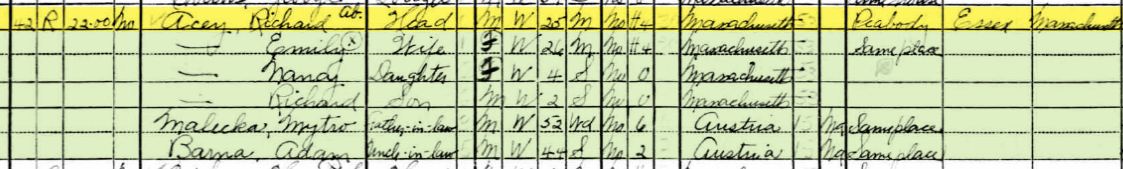 42 R 22.00 No Acey, Richard Ab. Head M W 25 M No H4 Massachusetts 53 Peabody Essex Massachusetts
— Emily ⓧ Wife F W 26 M No H4 Massachusetts Same place
— Nancy Daughter F W 4 S No 0 Massachusetts
— Richard Son M W 2 S No 0 Massachusetts
Malecka, Mytro Father-in-law M W 52 Wd No 6 Austria Na Same place
Barna, Adam Uncle-in-law M W 44 S No 2 Austria Na Same place